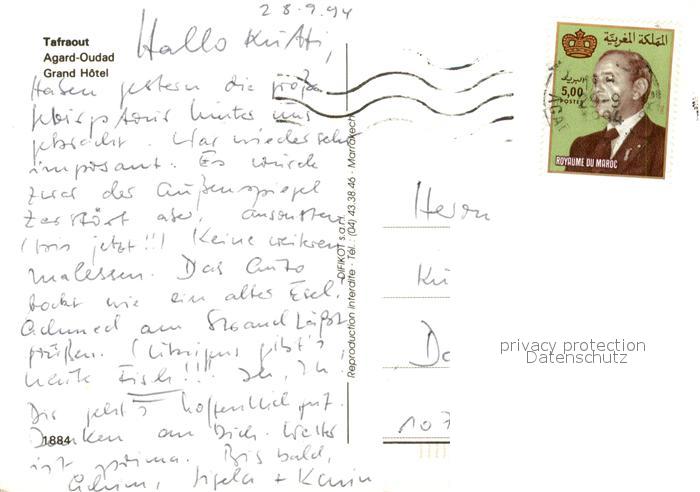 28.9.94
Tafraout
Agard-Oudad
Grand Hôtel
Hallo Kurtti,
Haben gestern die große
Gebirgstour hinter uns
gebracht. War wieder sehr
imposant. Es wurde
zwar der Außenspiegel
zerstört aber, ansonsten
(bis jetzt!!) Keine weiteren
Malessen. Das Auto
bockt wie ein alter Esel.
Achmed am Strand läßt
grüßen. (Übrigens gibt's
heute Fisch!!!
Dir geht's hoffentlich gut.
Denken an Dich. Wetter
ist prima. Bis bald,
Achim, + Karin
1884
DIFIKOT s.a.r.l.
Reproduction interdite - Tél.: (04) 43.38.46 - Marrakech
المملكة المغربية
البريد
5,00
POSTES
ROYAUME DU MAROC
Herrn
Kü
Da
107
privacy protection
Datenschutz